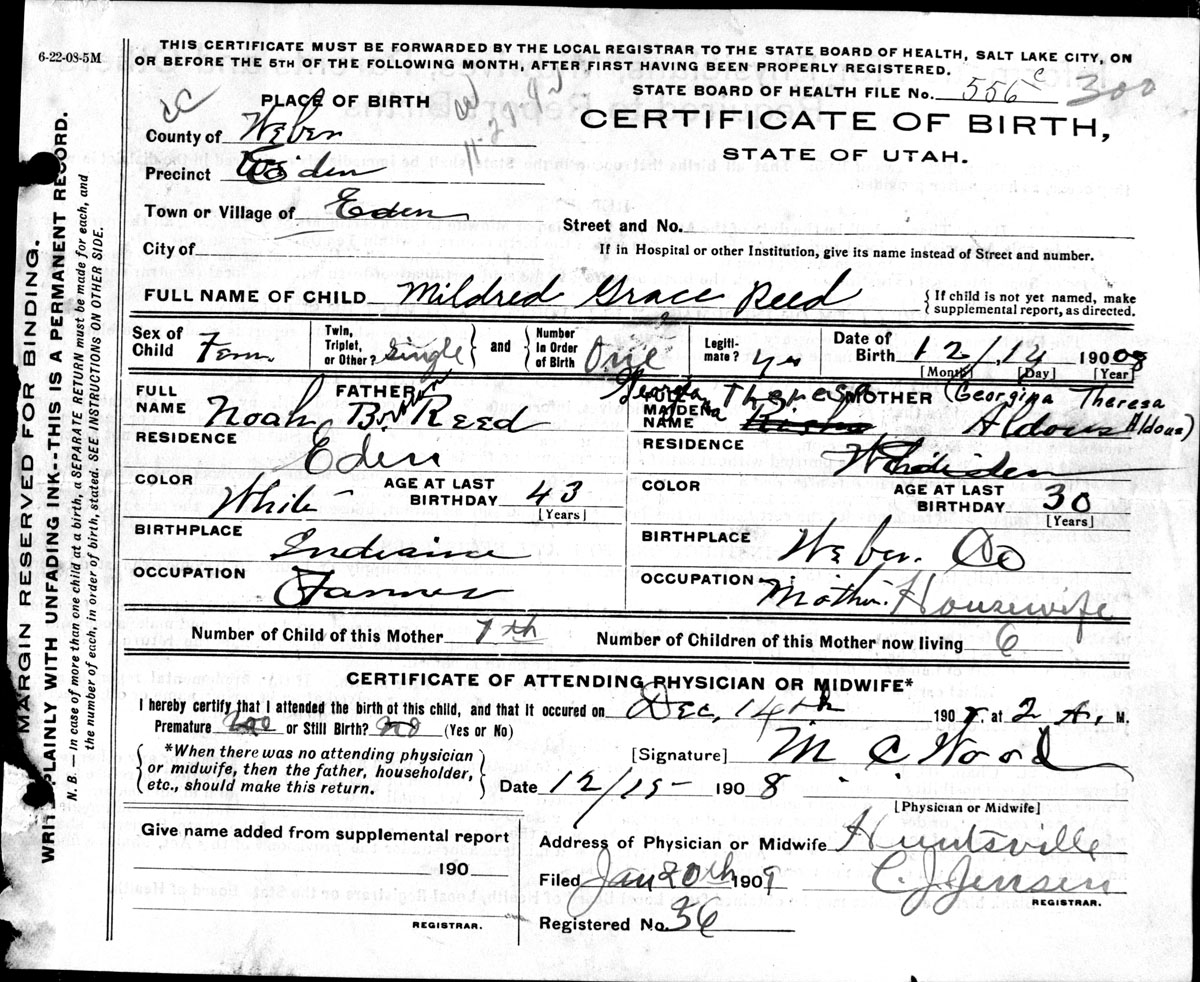 6-22-08-5M
THIS CERTIFICATE MUST BE FORWARDED BY THE LOCAL REGISTRAR TO THE STATE BOARD OF HEALTH, SALT LAKE CITY, ON
OR BEFORE THE 5TH OF THE FOLLOWING MONTH, AFTER FIRST HAVING BEEN PROPERLY REGISTERED.
STATE BOARD OF HEALTH FILE No. 556 c 300
PLACE OF BIRTH
CERTIFICATE OF BIRTH,
STATE OF UTAH.
County of Weber
Precinct Eden
Town or Village of Eden
Street and No.
City of
If in Hospital or other Institution, give its name instead of Street and number.
FULL NAME OF CHILD Mildred Grace Reed
{ If child is not yet named, make supplemental report, as directed.
Sex of Child Fem Twin, Triplet, or Other? Single } and { Number in Order of Birth One Legiti-mate? ys Date of Birth 12/14 190 08
[Month] [Day] [Year]
FULL NAME FATHER Noah Reed
MAIDEN NAME MOTHER Theresa Aldous (Georgina Theresa Aldous)
RESIDENCE Eden
RESIDENCE
COLOR White AGE AT LAST BIRTHDAY 43 [Years]
COLOR AGE AT LAST BIRTHDAY 30 [Years]
BIRTHPLACE Indiana
BIRTHPLACE Weber Co
OCCUPATION Farmer
OCCUPATION Mother. Housewife
Number of Child of this Mother 7th Number of Children of this Mother now living 6
CERTIFICATE OF ATTENDING PHYSICIAN OR MIDWIFE*
I hereby certify that I attended the birth of this child, and that it occured on Dec, 14th 190 8, at 2 A. M.
Premature or Still Birth? no (Yes or No)
*When there was no attending physician
or midwife, then the father, householder,
etc., should make this return.
[Signature] M C Wood
Date 12/15 190 8
[Physician or Midwife]
Give name added from supplemental report
190
REGISTRAR.
Address of Physician or Midwife Huntsville
Filed Jan 20th 190 9 C. J. Jensen
REGISTRAR.
Registered No. 36
MARGIN RESERVED FOR BINDING.
WRITE PLAINLY WITH UNFADING INK--THIS IS A PERMANENT RECORD.
N. B. — In case of more than one child at a birth, a SEPARATE RETURN must be made for each, and
the number of each, in order of birth, stated. SEE INSTRUCTIONS ON OTHER SIDE.